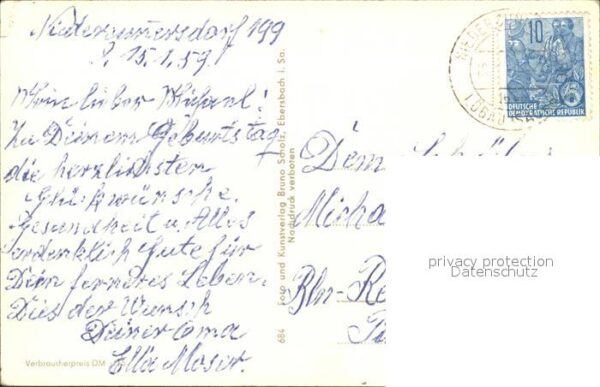 Niedercunnersdorf 199
d. 15.1.59.
Mein lieber Michael!
Zu Deinem Geburtstag
die herzlichsten
Glückwünsche.
Gesundheit u. Alles
erdenklich Gute für
Dein ferneres Leben.
Dies der Wunsch
Deiner Oma
Ella Moser.
Verbraucherpreis DM
684 Foto und Kunstverlag Bruno Scholz, Ebersbach i. Sa.
Nachdruck verboten
Dem
Micha
Bln-
10
DEUTSCHE
DEMOKRATISCHE REPUBLIK
5
privacy protection
Datenschutz